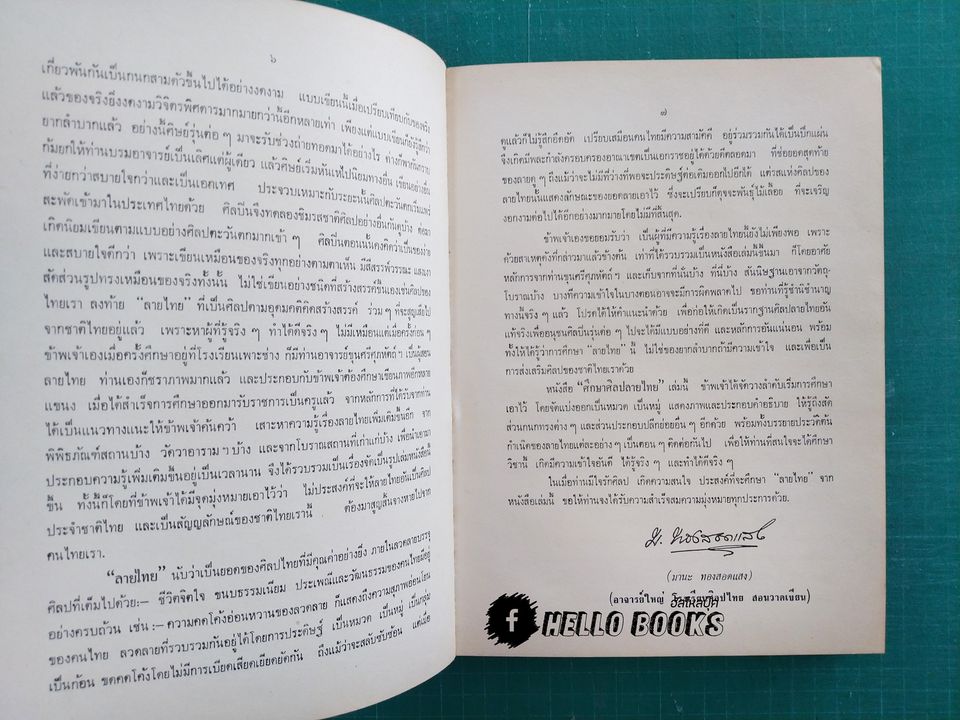 ๖
เกี่ยวพันกันเป็นกนกลามตัวขึ้นไปได้อย่างงดงาม แบบเขียนนี้เมื่อเปรียบเทียบกับของจริง
แล้วของจริงยิ่งงดงามวิจิตรพิศดารมากมายกว่านี้อีกหลายเท่า เพียงแต่แบบเขียนก็ยังรู้สึกว่า
ยากลำบากแล้ว อย่างนี้ศิษย์รุ่นต่อ ๆ มาจะรับช่วงถ่ายทอดมาได้อย่างไร ต่างก็พากันกราบ
ก้มยกให้ท่านบรมอาจารย์เป็นเลิศแต่ผู้เดียว แล้วศิษย์เริ่มหันเหไปนิยมทางอื่น เขียนอย่างอื่น
ที่ง่ายกว่าสบายใจกว่าและเป็นเอกเทศ ประจวบเหมาะกับระยะนั้นศิลปตะวันตกเริ่มแพร่
สะพัดเข้ามาในประเทศไทยด้วย ศิลปินจึงทดลองชิมรสชาติศิลปอย่างอื่นกันดูบ้าง ต่อมา
เกิดนิยมเขียนตามแบบอย่างศิลปตะวันตกมากเข้า ๆ ศิลปินตอนนั้นคงคิดว่าเป็นของง่าย
และสบายใจดีกว่า เพราะเขียนเหมือนของจริงทุกอย่างตามตาเห็น มีสีสรรพ์วรรณะ แสงเงา
สัดส่วนรูปทรงเหมือนของจริงทั้งนั้น ไม่ใช่เขียนอย่างชนิดที่สร้างสรรค์ขึ้นเองเช่นศิลปของ
ไทยเรา ลงท้าย “ลายไทย” ที่เป็นศิลปตามอุดมคติคิดสร้างสรรค์ ร่วม ๆ ที่จะสูญเสียไป
จากชาติไทยอยู่แล้ว เพราะหาผู้ที่รู้จริง ๆ ทำได้ดีจริง ๆ ไม่มีเหมือนแต่เมื่อครั้งก่อน ๆ
ข้าพเจ้าเองเมื่อครั้งศึกษาอยู่ที่โรงเรียนเพาะช่าง ก็มีท่านอาจารย์ขุนศรีศุภหัตถ์ฯ เป็นผู้สอน
ลายไทย ท่านเองก็ชราภาพมากแล้ว และประกอบกับข้าพเจ้าต้องศึกษาเขียนภาพอีกหลาย
แขนง เมื่อได้สำเร็จการศึกษาออกมารับราชการเป็นครูแล้ว จากหลักการที่ได้รับจากท่าน
ได้เป็นแนวทางแนะให้ข้าพเจ้าค้นคว้า เสาะหาความรู้เรื่องลายไทยเพิ่มเติมขึ้นอีก จาก
พิพิธภัณฑ์สถานบ้าง วัดวาอารามฯ บ้าง และจากโบราณสถานที่เก่าแก่บ้าง เพื่อนำเอามา
ประกอบความรู้เพิ่มเติมขึ้นอยู่เป็นเวลานาน จึงได้รวบรวมเป็นเรื่องจัดเป็นรูปเล่มหนังสือนี้
ขึ้น ทั้งนี้ก็โดยที่ข้าพเจ้าได้มีจุดมุ่งหมายเอาไว้ว่า ไม่ประสงค์ที่จะให้ลายไทยอันเป็นศิลป
ประจำชาติไทย และเป็นสัญญลักษณ์ของชาติไทยเรานี้ ต้องมาสูญสิ้นจางหายไปจาก
คนไทยเรา.
“ลายไทย” นับว่าเป็นยอดของศิลปไทยที่มีคุณค่าอย่างยิ่ง ภายในลวดลายบรรจุ
ศิลปที่เต็มไปด้วย:— ชีวิตจิตใจ ขนบธรรมเนียม ประเพณีและวัฒนธรรมของคนไทยมีอยู่
อย่างครบถ้วน เช่น :— ความคดโค้งอ่อนหวานของลวดลาย ก็แสดงถึงความสุภาพอ่อนโยน
ของคนไทย ลวดลายที่รวบรวมกันอยู่ได้โดยการประดิษฐ์ เป็นหมวด เป็นหมู่ เป็นกลุ่ม
เป็นก้อน ขดคดโค้งโดยไม่มีการเบียดเสียดเยียดยัดกัน ถึงแม้ว่าจะสลับซับซ้อน แต่เมื่อ
๗
ดูแล้วก็ไม่รู้สึกอึดอัด เปรียบเสมือนคนไทยมีความสามัคคี อยู่ร่วมรวมกันได้เป็นปึกแผ่น
จึงเกิดมีพละกำลังครอบครองอาณาเขตเป็นเอกราชอยู่ได้ด้วยดีตลอดมา ที่ช่อยอดสุดท้าย
ของลายดู ๆ ถึงแม้ว่าจะไม่มีที่ว่างที่พอจะประดิษฐ์ต่อเติมออกไปอีกได้ แต่รสแห่งศิลปของ
ลายไทยนั้นแสดงลักษณะของยอดลายเอาไว้ ซึ่งจะเปรียบก็ดุจจะพันธุ์ไม้เลื้อย ที่จะเจริญ
งอกงามต่อไปได้อีกอย่างมากมายโดยไม่มีที่สิ้นสุด.
ข้าพเจ้าเองขอยอมรับว่า เป็นผู้ที่มีความรู้เรื่องลายไทยนี้ยังไม่เพียงพอ เพราะ
ด้วยสาเหตุดังที่กล่าวมาแล้วข้างต้น เท่าที่ได้รวบรวมเป็นหนังสือเล่มนี้ขึ้นมา ก็โดยอาศัย
หลักการจากท่านขุนศรีศุภหัตถ์ฯ และเก็บจากที่นั่นบ้าง ที่นี่บ้าง สันนิษฐานเอาจากวัตถุ-
โบราณบ้าง บางทีความเข้าใจในบางตอนอาจจะมีการผิดพลาดไป ขอท่านที่รู้ชำนิชำนาญ
ทางนี้จริง ๆ แล้ว โปรดได้ให้คำแนะนำด้วย เพื่อก่อให้เกิดเป็นรากฐานศิลปลายไทยอัน
แท้จริงเพื่ออนุชนศิลปินรุ่นต่อ ๆ ไปจะได้มีแบบอย่างที่ดี และหลักการอันแน่นอน พร้อม
ทั้งให้ได้รู้ว่าการศึกษา “ลายไทย” นี้ ไม่ใช่ของยากลำบากถ้ามีความเข้าใจ และเพื่อเป็น
การส่งเสริมศิลปของชาติไทยเราด้วย
หนังสือ “ศึกษาศิลปลายไทย” เล่มนี้ ข้าพเจ้าได้จัดวางลำดับเริ่มการศึกษา
เอาไว้ โดยจัดแบ่งออกเป็นหมวด เป็นหมู่ แสดงภาพและประกอบคำอธิบาย ให้รู้ถึงสัด
ส่วนกนกทรงต่าง ๆ และส่วนประกอบปลีกย่อยอื่น ๆ อีกด้วย พร้อมทั้งบรรยายประวัติต้น
กำเนิดของลายไทยแต่ละอย่าง ๆ เป็นตอน ๆ ติดต่อกันไป เพื่อให้ท่านที่สนใจจะได้ศึกษา
วิชานี้ เกิดมีความเข้าใจอันดี ได้รู้จริง ๆ และทำได้ดีจริง ๆ
ในเมื่อท่านมีใจรักศิลป เกิดความสนใจ ประสงค์ที่จะศึกษา “ลายไทย” จาก
หนังสือเล่มนี้ ขอให้ท่านจงได้รับความสำเร็จสมความมุ่งหมายทุกประการด้วย.
ม. ทองสอดแสง
(มานะ ทองสอดแสง)
(อาจารย์ใหญ่ โรงเรียนศิลปไทย สอนวาดเขียน)
ฮัลโหลบุ๊ค
f HELLO BOOKS